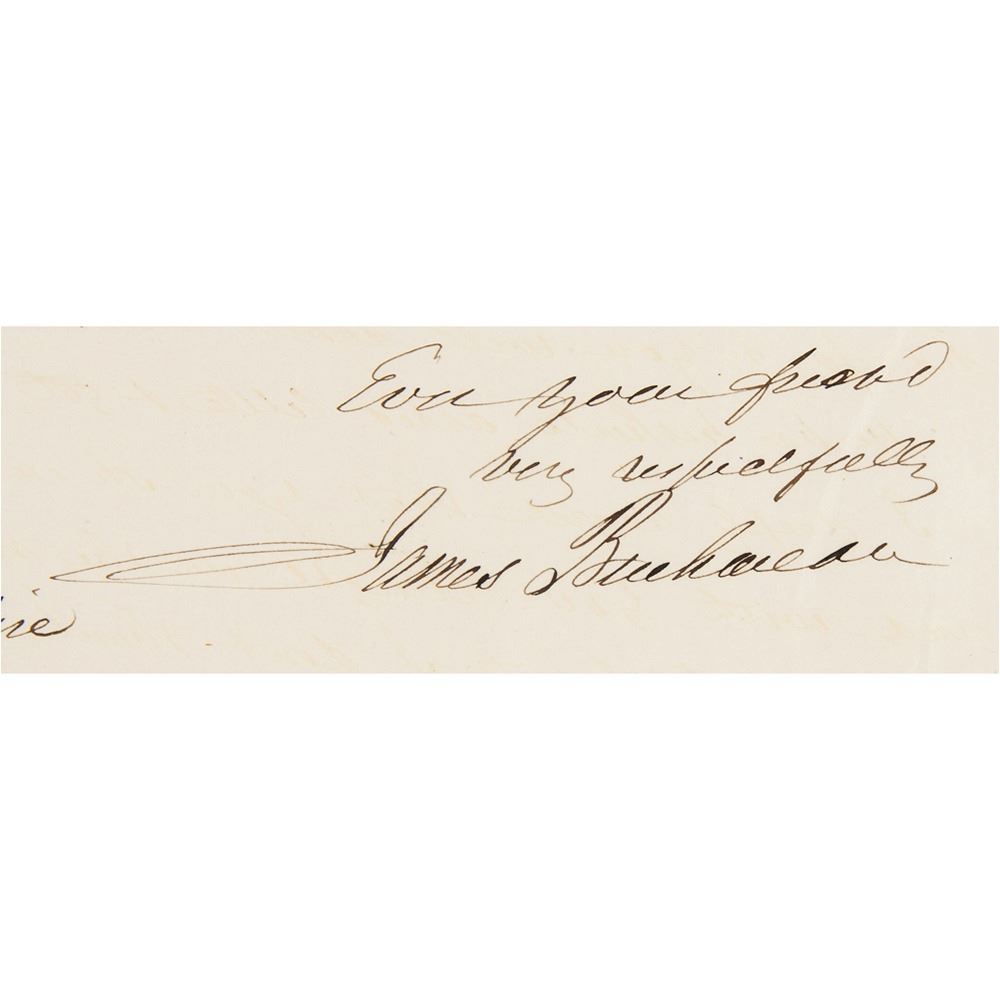 Ever your friend
very respectfully
James Buchanan